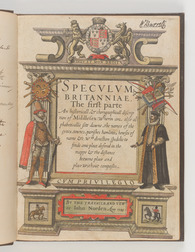 SPECVLVM
BRITANNIAE.
The first parte
An historicall, & chorographicall discrip=
tion of Middlesex. Wherin are also al=
phabeticallie sett downe, the names of the
townes, parishes hamletes, howses of
name &c. Wth direction spedelie to
finde anie place desired in the
mappe & the distance
betwene place and
place without compasses.
CVM PRIVILEGIO
BY THE TRAVAILE AND VEW
of Iohn Norden. Anno 1593